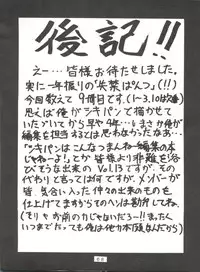 後記!!
えー…皆様お待たせしました。
実に一年振りの"失禁ぱんつ"(!!)
今回数えて9冊目です。(1~3,10は欠番)
思えば俺がラキパンで描かせて
いただいてから早や4年…まさか俺が
編集を担当するとは思わなかったなぁ…
「ラキパンはこんなつまんねー編集の本
じゃねーよ!」とか皆様より非難を浴
びそうな出来のVol.13ですが、その
代わりと言っては何ですが、メンバー
が皆、気合い入った作品の出来のものを
仕上げてますからその辺は勘弁してね、
(そりゃお前のカじゃないだろー!!まったく
いつまでたっても俺は他力本願なんだから)